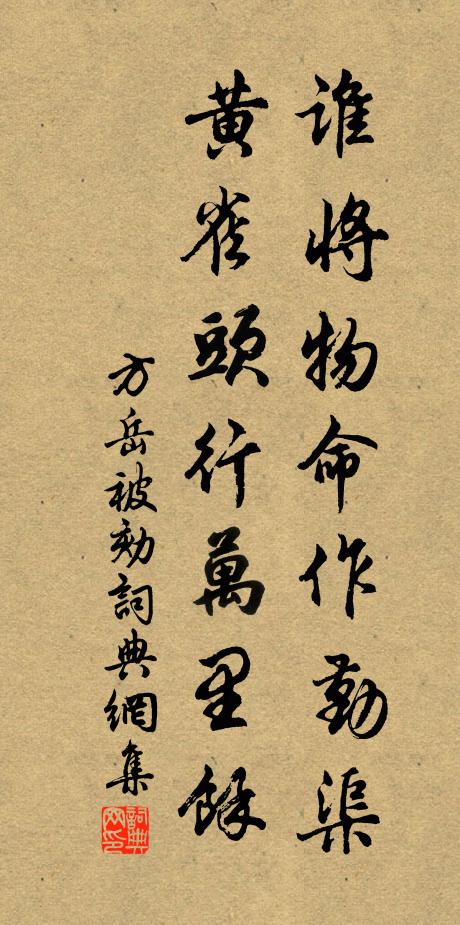 誰將物命作勤渠
黃雀頭行萬里餘
方岳被劾詞典網集
詞典網印